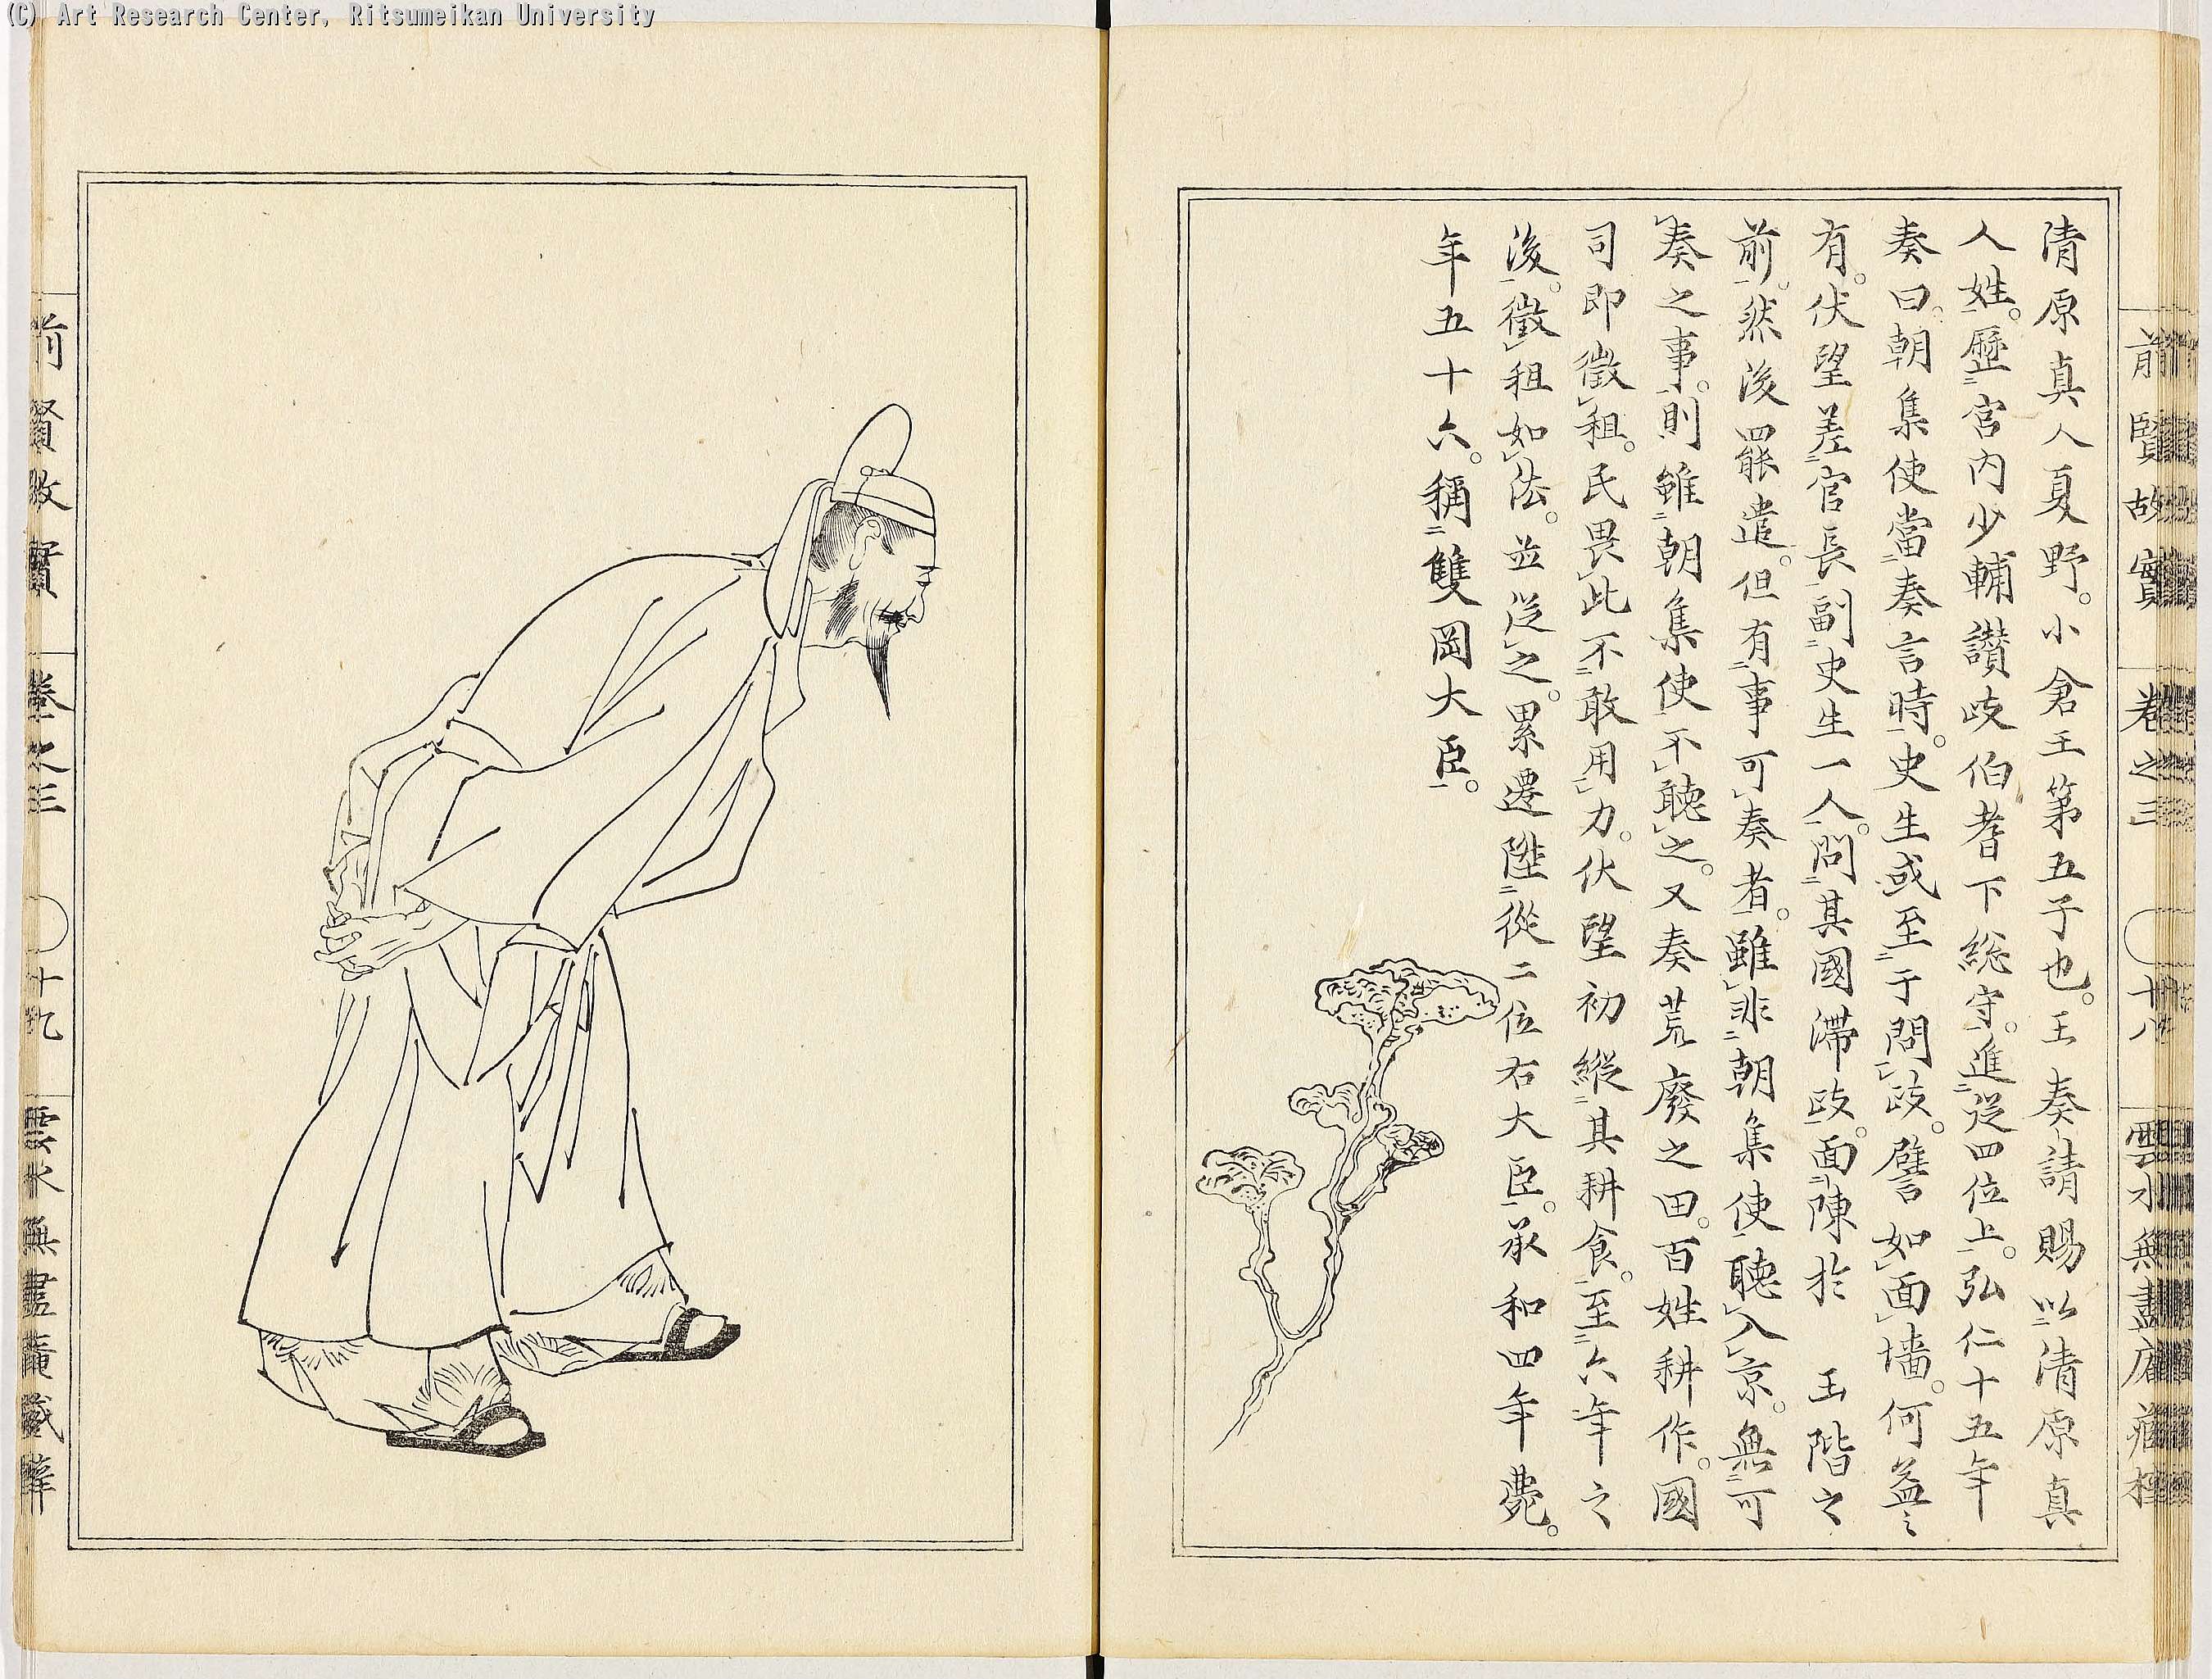 (C) Art Research Center, Ritsumeikan University
前賢故實 卷之三 十八 雲水無盡庵藏梓
清原真人夏野。小倉王第五子也。王奏請賜以清原真
人姓。歷宮內少輔讃岐伯耆下総守。進從四位上。弘仁十五年
奏曰。朝集使當奏言時。史生或至于問歧。譬如面墻。何益之
有。伏望差官長副史生一人。問其國滯歧。面陳於 玉階之
前。然後罷遣。但有事可奏者。雖非朝集使聽入京。無可
奏之事。則雖朝集使不聽之。又奏荒廢之田。百姓耕作。國
司即徵租。民畏此不敢用力。伏望初縱其耕食。至六年之
後。徵租如法。並從之。累遷陞從二位右大臣。承和四年薨。
年五十六。稱雙岡大臣。
前賢故實 卷之三 十九 雲水無盡庵藏梓